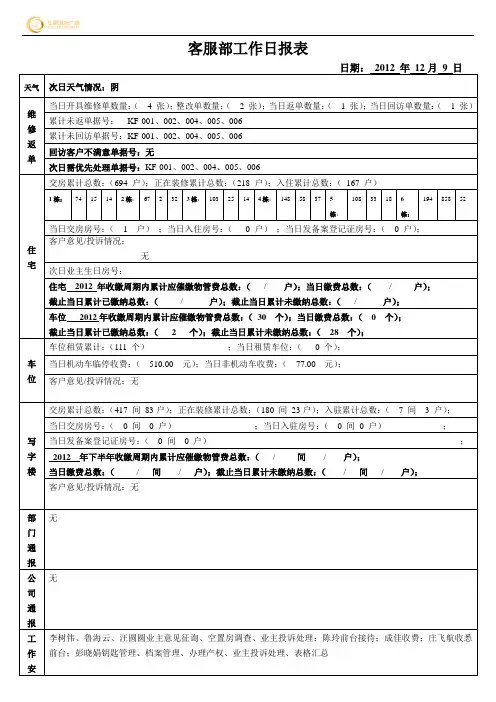 客服部工作日报表
日期： 2012 年 12月 9 日
天气 次日天气情况：阴
维修返单
当日开具维修单数量：（ 4 张）；整改单数量：（ 2 张）；当日返单数量：（ 1 张）；当日回访单数量：（ 1 张）
累计未返单据号： KF 001、002、004、005、006
累计未回访单据号：KF 001、002、004、005、006
回访客户不满意单据号：无
次日需优先处理单据号：KF 001、002、004、005、006
住宅
交房累计总数：（694 户）；正在装修累计总数：（218 户）；入住累计总数：（ 167 户）
1栋： 74 15 14 2栋： 67 2 32 3栋： 103 25 14 4栋： 148 58 37 5栋： 108 33 18 6栋： 194 858 52
当日交房房号：（ 1 户）；当日入住房号：（ 0 户）；当日发备案登记证房号：（ 0 户）；
客户意见/投诉情况：
无
次日业主生日房号：
住宅 2012 年收缴周期内累计应催缴物管费总数：（ / 户）；当日缴费总数：（ / 户）；
截止当日累计已缴纳总数：（ / 户）；截止当日累计未缴纳总数：（ / 户）；
车位 2012年收缴周期内累计应催缴物管费总数：（ 30 个）；当日缴费总数：（ 0 个）；
截止当日累计已缴纳总数：（ 2 个）；截止当日累计未缴纳总数：（ 28 个）；
车位
车位租赁累计：（111 个） ；当日租赁车位：（ 0 个）；
当日机动车临停收费：（ 510.00 元）；当日非机动车收费：（ 77.00 元）；
客户意见/投诉情况：无
写字楼
交房累计总数：（417 间 83户）；正在装修累计总数：（180 间 23户）；入驻累计总数：（ 7 间 3 户）；
当日交房房号：（ 0 间 0 户） ；当日入驻房号：（ 0 间 0 户） ；
当日发备案登记证房号：（ 0 间 0 户） ；
2012 年下半年收缴周期内累计应催缴物管费总数：（ / 间 / 户）；
当日缴费总数：（ / 间 / 户）；截止当日累计未缴纳总数：（ / 间 / 户）；
客户意见/投诉情况：无
部门通报 无
公司通报 无
工作安
李树伟、鲁海云、汪圆圆业主意见征询、空置房调查、业主投诉处理；陈玲前台接待；成佳收费；庄飞航收悉
前台；彭晓娟钥匙管理、档案管理、办理产权、业主投诉处理、表格汇总